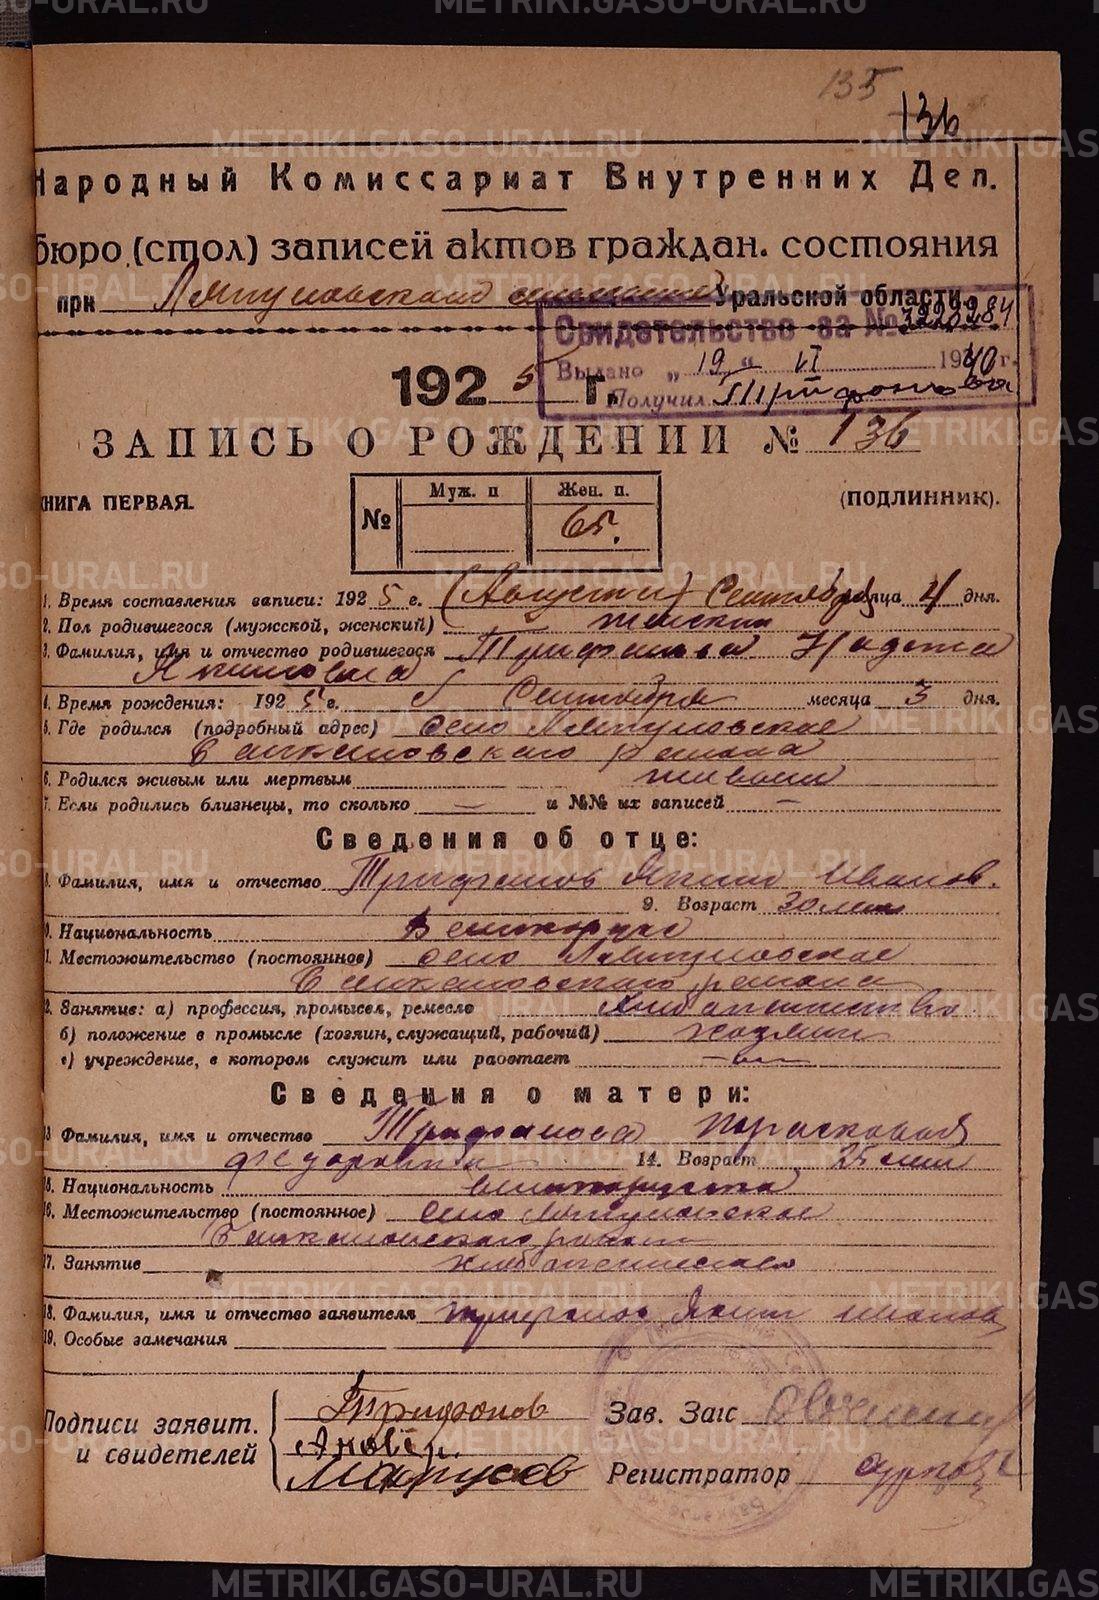 135
136
Народный Комиссариат Внутренних Дел.
бюро (стол) записей актов граждан. состояния
при Уральской области
Свидетельство за № 3220284
Выдано „ 19 “ VI 1940 г.
Получил Трифонова
1925 г.
ЗАПИСЬ О РОЖДЕНИИ № 136
КНИГА ПЕРВАЯ. (ПОДЛИННИК).
№ Муж. п Жен. п.
65.
1. Время составления записи: 1925 г. (Август) Сентября месяца 4 дня.
2. Пол родившегося (мужской, женский) женский
3. Фамилия, имя и отчество родившегося Трифонова Надежда
Якимовна
4. Время рождения: 1925 г. Сентября месяца 3 дня.
5. Где родился (подробный адрес) село
района
6. Родился живым или мертвым живым
7. Если родились близнецы, то сколько — и №№ их записей —
Сведения об отце:
8. Фамилия, имя и отчество Трифонов Яким Иванов.
9. Возраст 30 лет
10. Национальность великорус
11. Местожительство (постоянное) село
района
12. Занятие: а) профессия, промысел, ремесло хлебопашество
б) положение в промысле (хозяин, служащий, рабочий) хозяин
в) учреждение, в котором служит или работает
Сведения о матери:
13 Фамилия, имя и отчество Трифонова Парасковья
Федоровна 14. Возраст 25 лет
15. Национальность великоруска
16. Местожительство (постоянное) село
района
17. Занятие хлебопашество
18. Фамилия, имя и отчество заявителя Трифонов Яким Иванов
19. Особые замечания
Подписи заявит. и свидетелей
Трифонов
Зав. Загс
Регистратор
METRIKI.GASO-URAL.RU